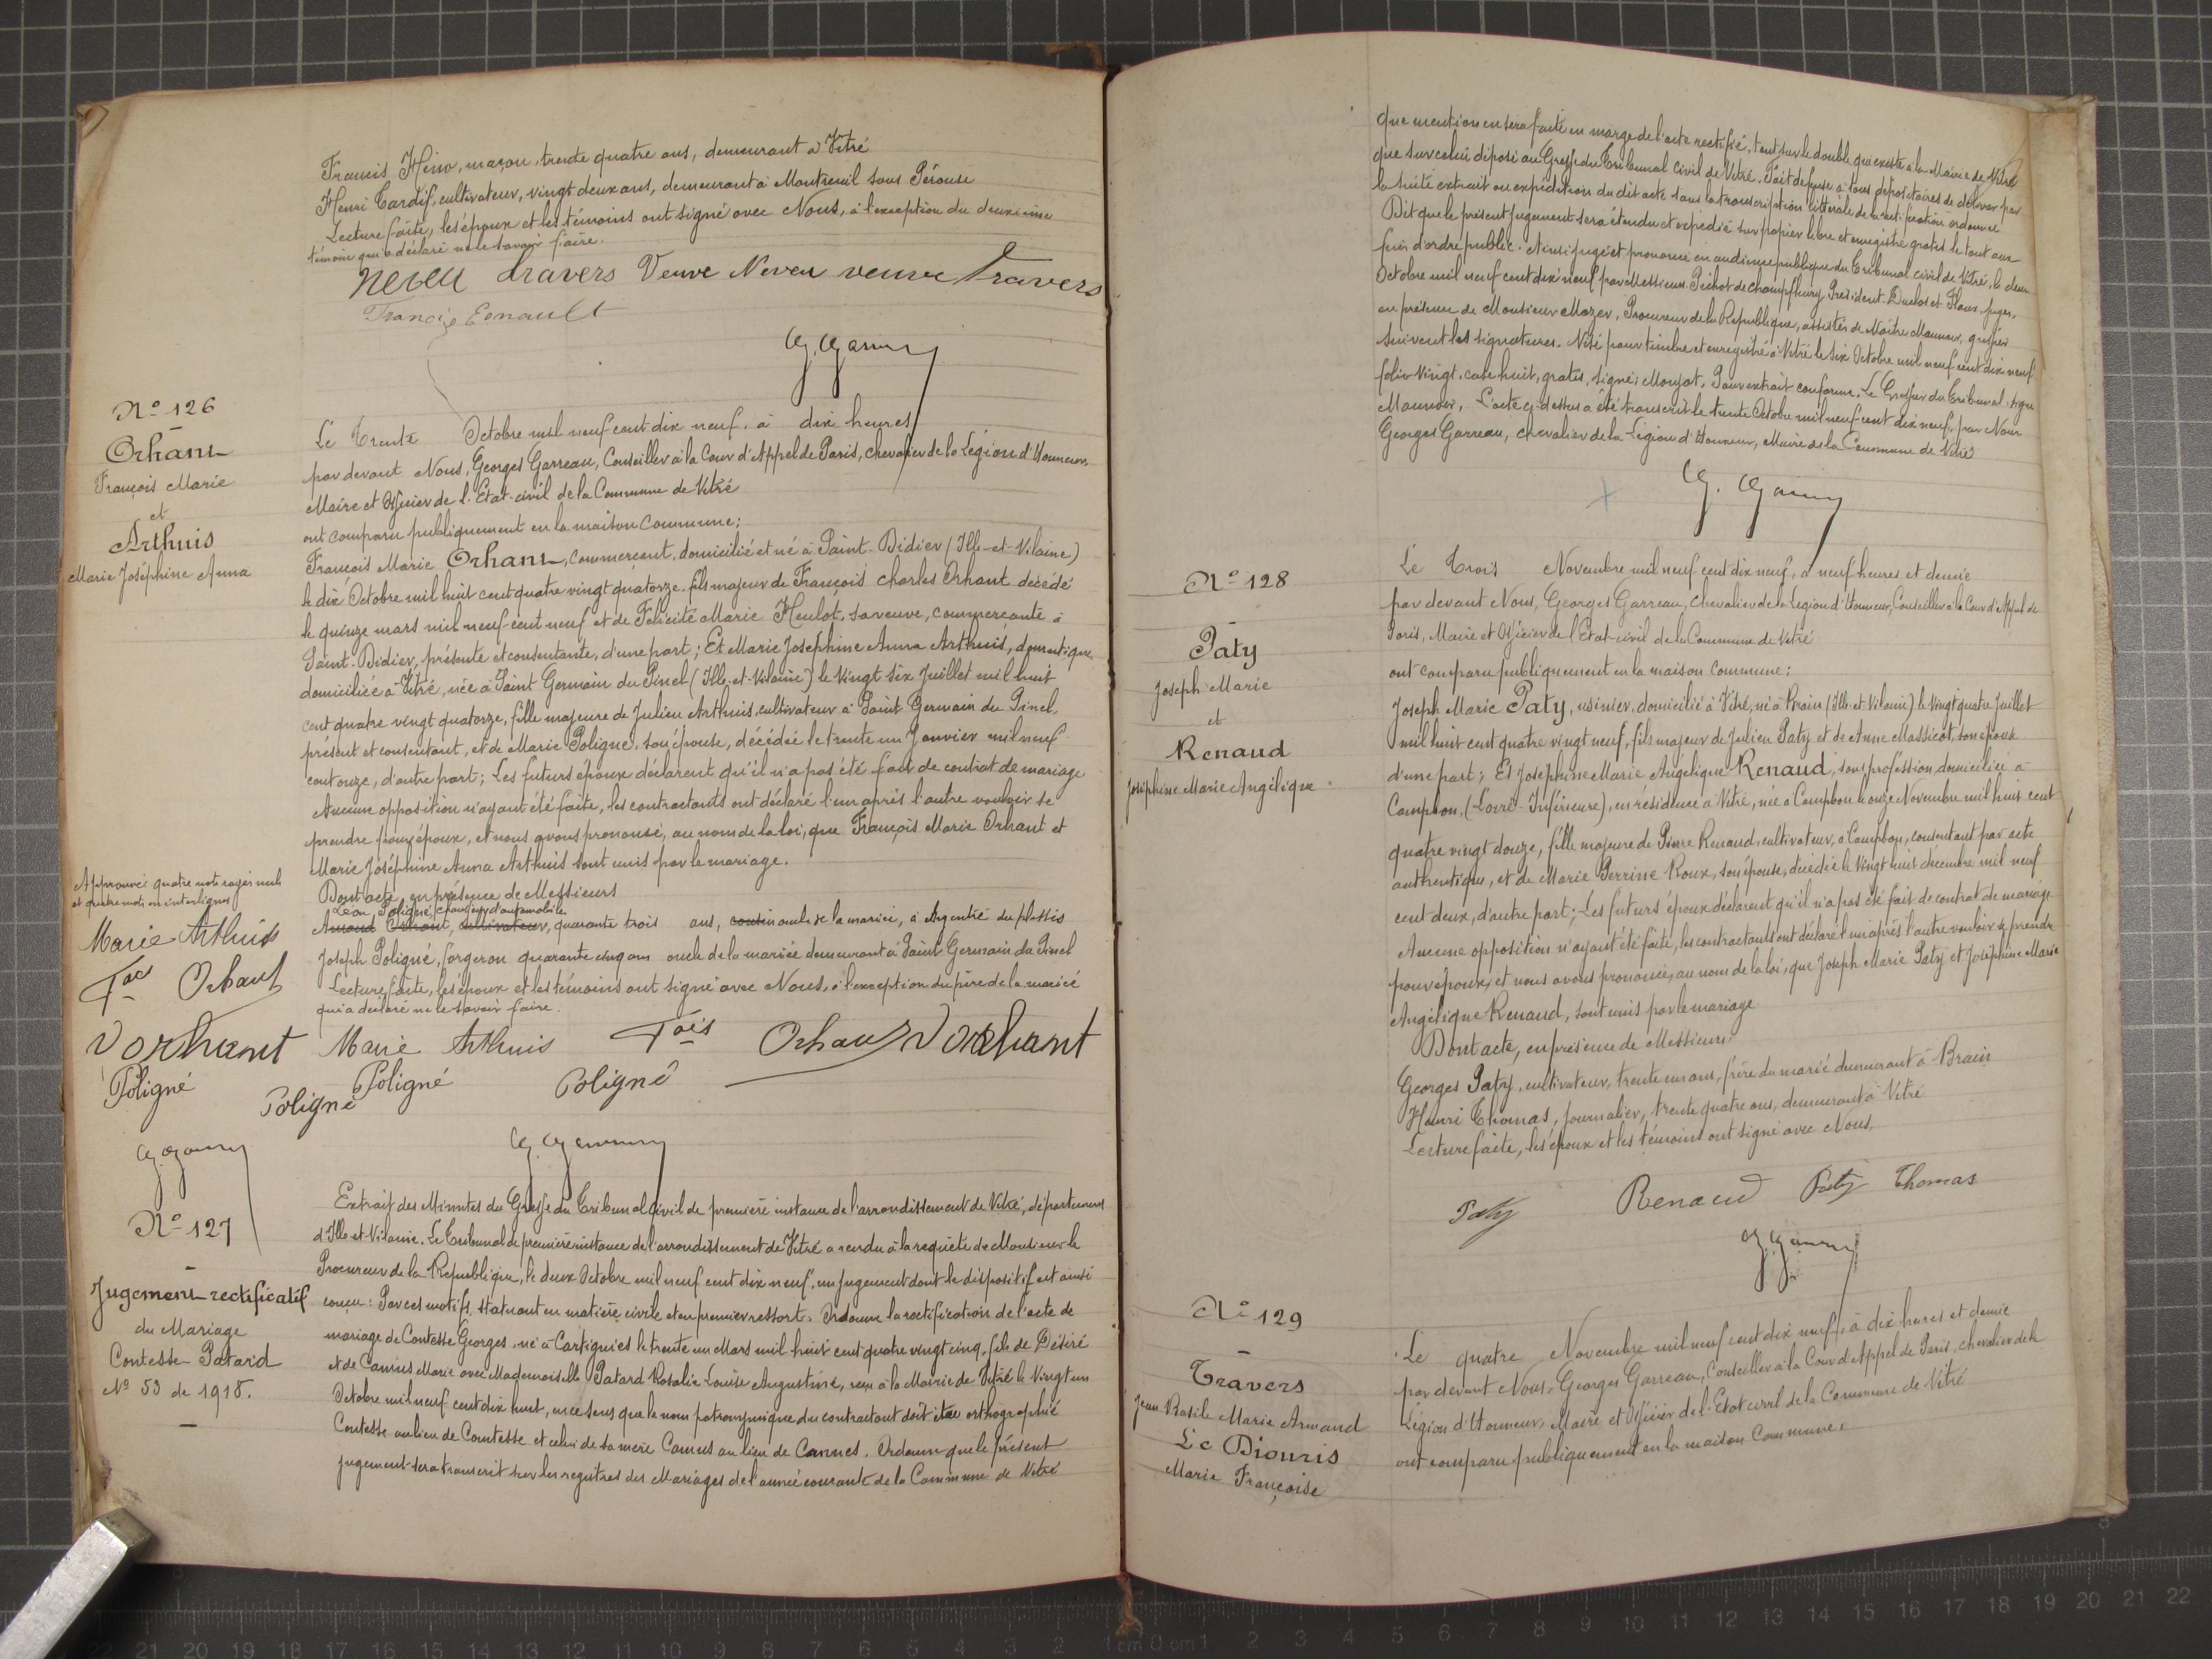 Francis Héno, maçon, trente quatre ans, demeurant à Vitré
Henri Cardif, cultivateur, vingt deux ans, demeurant à Montreuil sous Pérouse
Lecture faite, les époux et les témoins ont signé avec Nous, à l'exception du deuxième
témoin qui a déclaré ne le savoir faire.
neveu travers Veuve Neveu veuve Travers
Francis
G. Garreau
No 126
Orhant
François Marie
et
Arthuis
Marie Joséphine Anna
Le Trente Octobre mil neuf cent dix neuf, à dix heures
par devant Nous, Georges Garreau, Conseiller à la Cour d'Appel de Paris, chevalier de la Légion d'Honneur
Maire et Officier de l'Etat-civil de la Commune de Vitré
ont comparu publiquement en la maison Commune;
François Marie Orhant, commerçant, domicilié et né à Saint-Didier (Ille-et-Vilaine)
le dix Octobre mil huit cent quatre vingt quatorze, fils majeur de François Charles Orhant décédé
le quinze mars mil neuf cent neuf et de Félicité Marie Heulot, sa veuve, commerçante à
Saint-Didier, présente et consentante, d'une part; Et Marie Joséphine Anna Arthuis, domestique
domiciliée à Vitré, née à Saint Germain du Pinel (Ille-et-Vilaine) le vingt six Juillet mil huit
cent quatre vingt quatorze, fille majeure de Julien Arthuis, cultivateur à Saint Germain du Pinel,
présent et consentant, et de Marie Poligné, son épouse, décédée le trente un Janvier mil neuf
cent onze, d'autre part; Les futurs époux déclarent qu'il n'a pas été fait de contrat de mariage
Aucune opposition n'ayant été faite, les contractants ont déclaré l'un après l'autre vouloir se
prendre pour époux, et nous avons prononcé, au nom de la loi, que François Marie Orhant et
Marie Joséphine Anna Arthuis sont unis par le mariage.
Dont acte, en présence de Messieurs
Approuvé quatre mots rayés nuls
et quatre mots en interlignes
Léon Poligné, chauffeur d'automobile
Orhant, cultivateur, quarante trois ans, cousin oncle de la mariée, à Argentré du plessis
Joseph Poligné, forgeron quarante cinq ans oncle de la mariée demeurant à Saint Germain du Pinel
Lecture faite, les époux et les témoins ont signé avec Nous, à l'exception du père de la mariée
qui a déclaré ne le savoir faire.
Marie Arthuis
Fois Orhant
V orhant Marie Arthuis Fois Orhant V orhant
Poligné Poligné Poligné Poligné
G. Garreau G. Garreau
No 127
Jugement rectificatif
du Mariage
Contesse-Patard
No 53 de 1918.
Extrait des Minutes du Greffe du Tribunal Civil de première instance de l'arrondissement de Vitré, département
d'Ille-et-Vilaine. Le Tribunal de première instance de l'arrondissement de Vitré a rendu à la requête de Monsieur le
Procureur de la République, le deux Octobre mil neuf cent dix neuf, un Jugement dont le dispositif est ainsi
conçu: Par ces motifs, statuant en matière civile et en premier ressort. Ordonne la rectification de l'acte de
mariage de Contesse Georges, né à Cartignies le trente un Mars mil huit cent quatre vingt cinq, fils de Désiré
et de Camus Marie avec Mademoiselle Patard Rosalie Louise Augustine, reçu à la Mairie de Vitré le Vingt un
Octobre mil neuf cent dix huit, en ce sens que le nom patronymique du contractant doit être orthographié
Contesse au lieu de Comtesse et celui de sa mère Camus au lieu de Cannes. Ordonne que le présent
jugement sera transcrit sur les registres des Mariages de l'année courante de la Commune de Vitré
que mention en sera faite en marge de l'acte rectifié, tant sur le double qui existe à la Mairie de Vitré
que sur celui déposé au Greffe du Tribunal Civil de Vitré. Fait défense à tous dépositaires de délivrer par
la suite extrait ou expédition du dit acte sans la transcription littérale de la rectification ordonnée
Dit que le présent Jugement sera étendu et expédié sur papier libre et enregistré gratis le tout aux
fins d'ordre public. Ainsi jugé et prononcé en audience publique du Tribunal civil de Vitré, le deux
Octobre mil neuf cent dix neuf par Messieurs Pichot de Champfleury Président. Duclos et Juges,
en présence de Monsieur Mazer, Procureur de la République, assistés de Maître Maunoir, greffier
Suivent les signatures. Visé pour timbre et enregistré à Vitré le six Octobre mil neuf cent dix neuf
folio vingt, case huit, gratis, signé: Monjot. Pour extrait conforme. Le Greffier du Tribunal, signé
Maunoir. L'acte ci-dessus a été transcrit le trente Octobre mil neuf cent dix neuf, par Nous
Georges Garreau, chevalier de la Légion d'Honneur, Maire de la Commune de Vitré
G. Garreau
No 128
Paty
Joseph Marie
et
Renaud
Joséphine Marie Angélique
Le Trois Novembre mil neuf cent dix neuf, à neuf heures et demie
par devant Nous, Georges Garreau, chevalier de la Légion d'Honneur, Conseiller à la Cour d'Appel de
Paris, Maire et Officier de l'Etat-civil de la Commune de Vitré
ont comparu publiquement en la maison Commune:
Joseph Marie Paty, usinier, domicilié à Vitré, né à Brain (Ille-et-Vilaine) le vingt quatre Juillet
mil huit cent quatre vingt neuf, fils majeur de Julien Paty et de Anne Massicot, son épouse
d'une part; Et Joséphine Marie Angélique Renaud, sans profession, domiciliée à
Campbon, (Loire-Inférieure), en résidence à Vitré, née à Campbon le onze Novembre mil huit cent
quatre vingt douze, fille majeure de Pierre Renaud, cultivateur, à Campbon, consentant par acte
authentique, et de Marie Perrine Roux, son épouse, décédée le vingt huit décembre mil neuf
cent deux, d'autre part; Les futurs époux déclarent qu'il n'a pas été fait de contrat de mariage
Aucune opposition n'ayant été faite, les contractants ont déclaré l'un après l'autre vouloir se prendre
pour époux, et nous avons prononcé, au nom de la loi, que Joseph Marie Paty et Joséphine Marie
Angélique Renaud, sont unis par le mariage
Dont acte, en présence de Messieurs
Georges Paty, cultivateur, trente un ans, frère du marié demeurant à Brain
Henri Thomas, journalier, trente quatre ans, demeurant à Vitré
Lecture faite, les époux et les témoins ont signé avec Nous.
Paty Renaud Paty Thomas
G. Garreau
No 129
Travers
Jean Basile Marie Armand
Le Diouris
Marie Françoise
Le quatre Novembre mil neuf cent dix neuf, à dix heures et demie
par devant Nous, Georges Garreau, Conseiller à la Cour d'Appel de Paris, chevalier de la
Légion d'Honneur, Maire et Officier de l'Etat civil de la Commune de Vitré
ont comparu publiquement en la maison Commune,
22 21 20 19 18 17 16 15 14 13 12 11 10 9 8 7 6 5 4 3 2 1 cm 0 cm 1 2 3 4 5 6 7 8 9 10 11 12 13 14 15 16 17 18 19 20 21 22